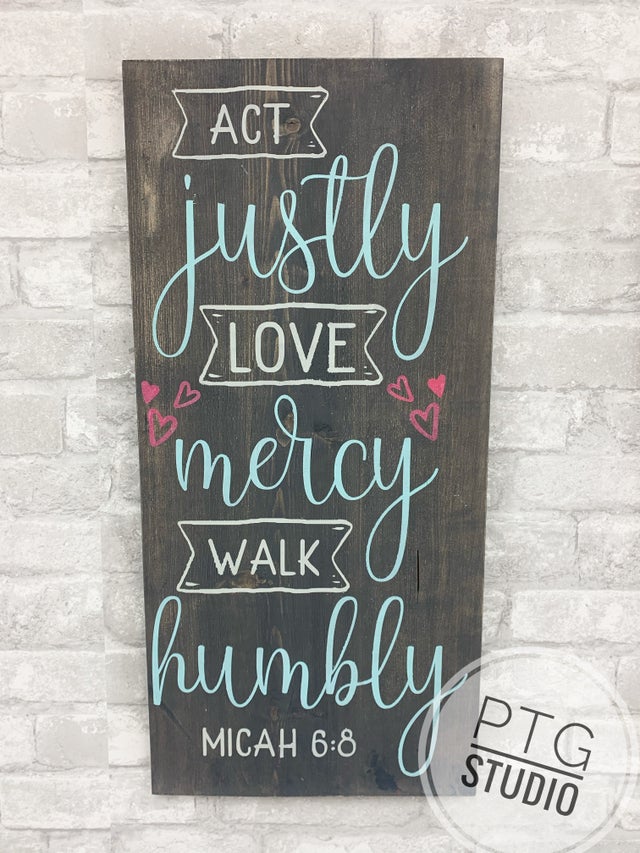 ACT
justly
LOVE
mercy
WALK
humbly
MICAH 6:8
PTG
STUDIO